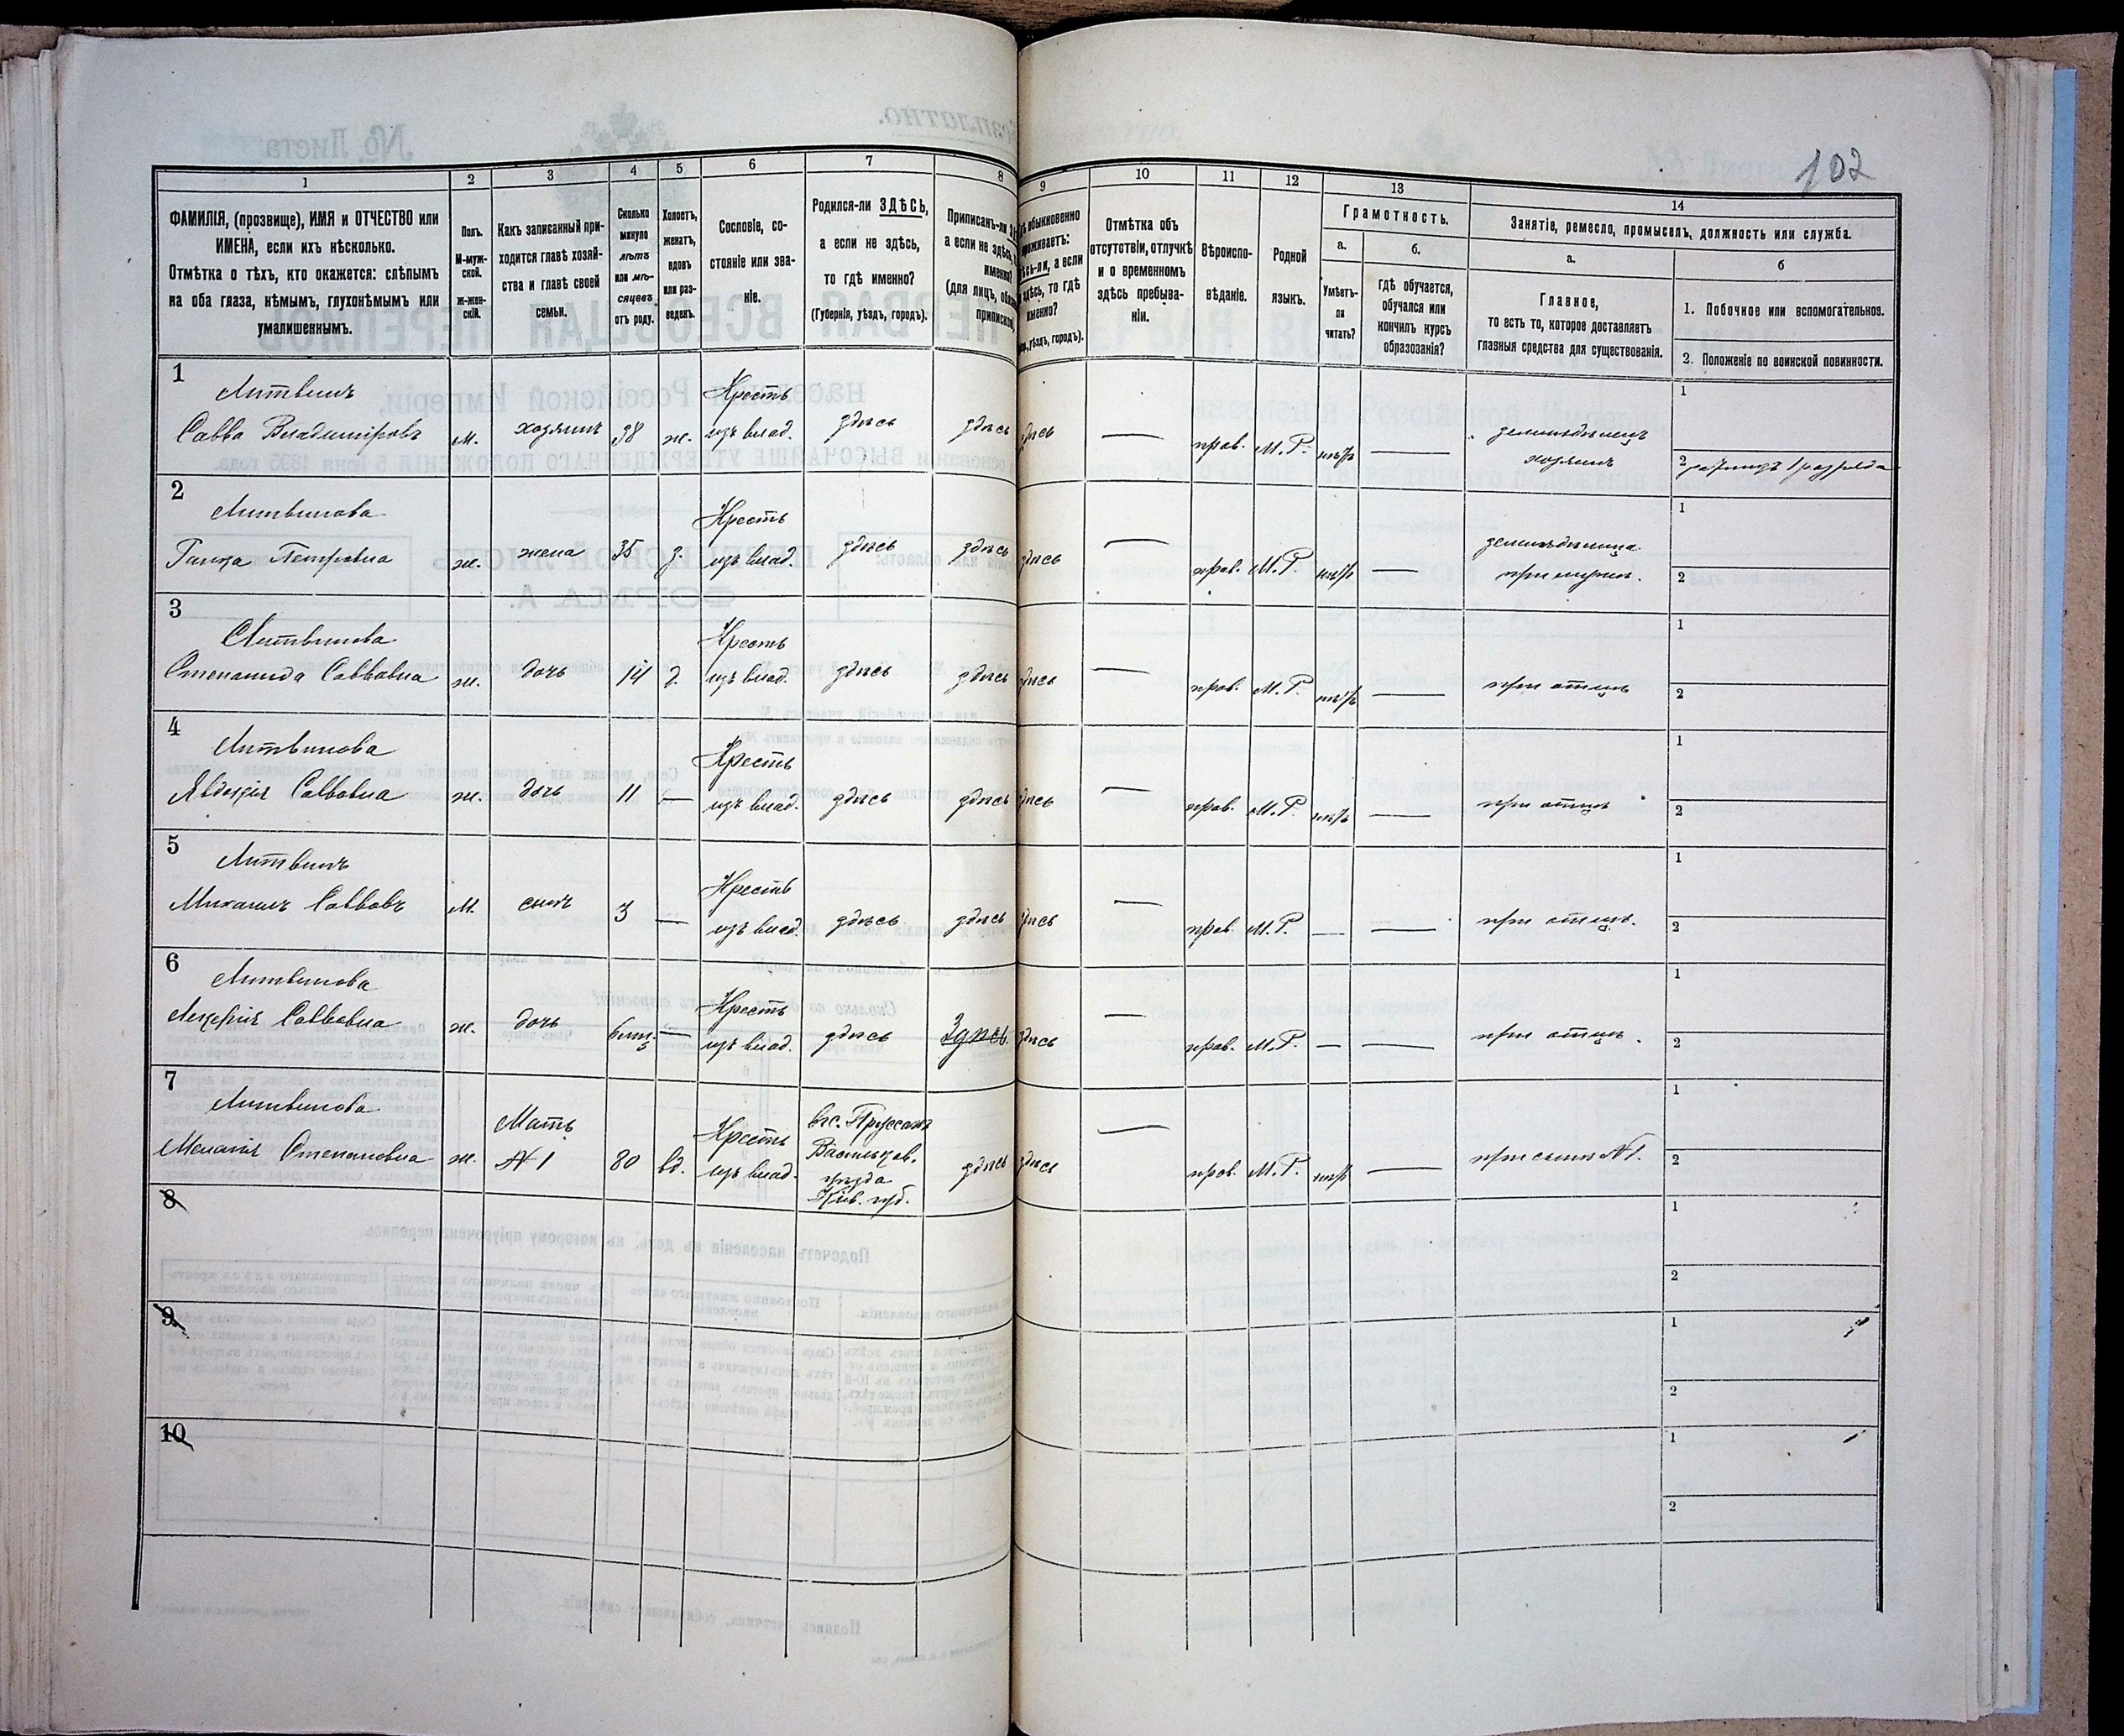 102
1
2
3
4
5
6
7
8
9
10
11
12
13
14
ФАМИЛІЯ, (прозвище), ИМЯ и ОТЧЕСТВО или
ИМЕНА, если ихъ нѣсколько.
Отмѣтка о тѣхъ, кто окажется: слѣпымъ
на оба глаза, нѣмымъ, глухонѣмымъ или
умалишеннымъ.
Полъ.
М-муж-
ской.
ж-жен-
скій.
Какъ записанный при-
ходится главѣ хозяй-
ства и главѣ своей
семьи.
Сколько
минуло
лѣтъ
или мѣ-
сяцевъ
отъ роду.
Холостъ,
женатъ,
вдовъ
или раз-
веденъ.
Сословіе, со-
стояніе или зва-
ніе.
Родился-ли ЗДѢСЬ,
а если не здѣсь,
то гдѣ именно?
(Губернія, уѣздъ, городъ).
Приписанъ-ли
а если не здѣсь,
именно?
(для лицъ,
обыкновенно
а если
здѣсь, то гдѣ
именно?
уѣздъ, городъ).
Отмѣтка объ
отсутствіи, отлучкѣ
и о временномъ
здѣсь пребыва-
ніи.
Вѣроиспо-
вѣданіе.
Родной
языкъ.
Грамотность.
а.
Умѣетъ-
ли
читать?
б.
гдѣ обучается,
обучался или
кончилъ курсъ
образованія?
Занятіе, ремесло, промыселъ, должность или служба.
а.
Главное,
то есть то, которое доставляетъ
главныя средства для существованія.
б
1. Побочное или вспомогательное.
2. Положеніе по воинской повинности.
1 Литвинъ Кресть 1
Савва Владиміровъ м. хозяинъ 38 ж. изъ влад. здѣсь здѣсь здѣсь — прав. М.Р. нѣтъ — земледѣлецъ
хозяинъ 2 ратникъ 1 разряда
2 Литвинова Кресть 1
Ганна Петровна ж. жена 35 з. изъ влад. здѣсь здѣсь здѣсь — прав. М.Р. нѣтъ — земледѣлица
при мужѣ. 2
3 Литвинова Кресть 1
Степанида Саввовна ж. дочь 14 д. изъ влад. здѣсь здѣсь здѣсь — прав. М.Р. нѣтъ — при отцѣ 2
4 Литвинова Кресть 1
Явдокія Саввовна ж. дочь 11 — изъ влад. здѣсь здѣсь здѣсь — прав. М.Р. нѣтъ — при отцѣ 2
5 Литвинъ Кресть 1
Михаилъ Саввовъ м. сынъ 3 — изъ влад. здѣсь здѣсь здѣсь — прав. М.Р. — — при отцѣ. 2
6 Литвинова Кресть 1
Саввовна ж. дочь — изъ влад. здѣсь здѣсь здѣсь — прав. М.Р. — — при отцѣ. 2
7 Литвинова Мать Кресть 1
Меланія Степановна ж. №1 80 вд. изъ влад. Васильков.
уѣзда
Кіев. губ. здѣсь здѣсь — прав. М.Р. нѣтъ — при сынѣ №1. 2
8 1
2
9 1
2
10 1
2